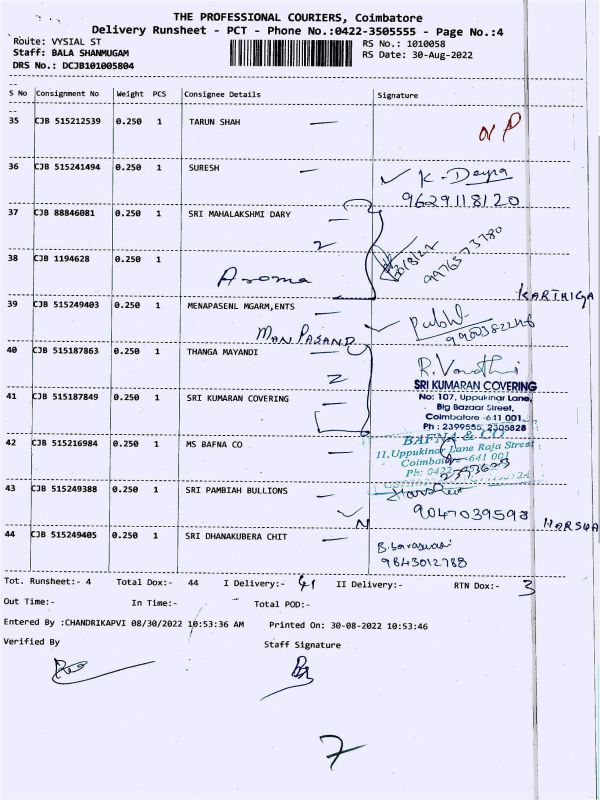 THE PROFESSIONAL COURIERS, Coimbatore
Delivery Runsheet - PCT - Phone No.:0422-3505555 - Page No.:4
Route: VYSIAL ST
RS No.: 1010058
Staff: BALA SHANMUGAM
RS Date: 30-Aug-2022
DRS No.: DCJB101005804
S No Consignment No Weight PCS Consignee Details Signature
35 CJB 515212539 0.250 1 TARUN SHAH
NP
36 CJB 515241494 0.250 1 SURESH
K. Deepa
9629118120
37 CJB 88846081 0.250 1 SRI MAHALAKSHMI DARY
2
38 CJB 1194628 0.250 1
Aroma
KARTHIGA
39 CJB 515249403 0.250 1 MENAPASENL MGARM,ENTS
MAN PASAND
40 CJB 515187863 0.250 1 THANGA MAYANDI
2
R. Vandhi
41 CJB 515187849 0.250 1 SRI KUMARAN COVERING
SRI KUMARAN COVERING
No: 107, Uppukinar Lane,
Big Bazaar Street,
Coimbatore - 641 001.
Ph : 2399555, 2305828
42 CJB 515216984 0.250 1 MS BAFNA CO
BAFNA & CO
11, Uppukinar Lane Raja Street
Coimbatore -641 001
Ph: 0422
43 CJB 515249388 0.250 1 SRI PAMBIAH BULLIONS
N
9047039598
HARSHA
44 CJB 515249405 0.250 1 SRI DHANAKUBERA CHIT
9843012788
Tot. Runsheet:- 4 Total Dox:- 44 I Delivery:- 41 II Delivery:- RTN Dox:- 3
Out Time:- In Time:- Total POD:-
Entered By :CHANDRIKAPVI 08/30/2022 10:53:36 AM Printed On: 30-08-2022 10:53:46
Verified By Staff Signature
7